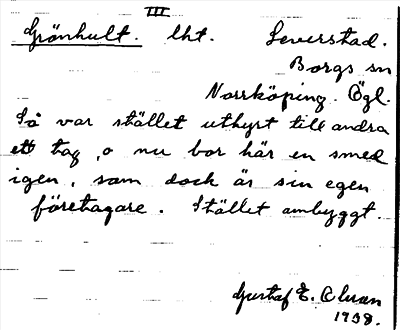 III
Grönhult. lht. Leverstad.
Borgs sn
Norrköping Ögl.
Så var stället uthyrt till andra
ett tag, o nu bor här en smed
igen, som dock är sin egen
företagare. Stället ombyggt.
Gustaf E.
1938.